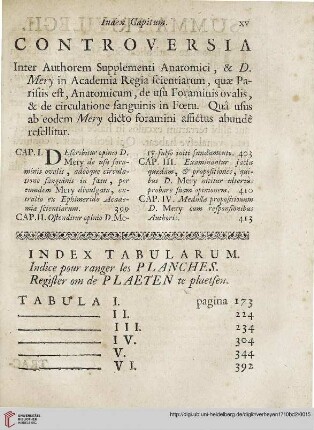 Index Capitum. xv
CONTROVERSIA
Inter Authorem Supplementi Anatomici, & D.
Mery in Academia Regia scientiarum, quæ Pa-
risiis est, Anatomicum, de usu Foraminis ovalis,
& de circulatione sanguinis in Fœtu. Quâ usus
ab eodem Mery dicto foramini affictus abunde
refellitur.
CAP. I. DEscribitur opinio D.
Mery de usu fora-
minis ovalis, adeoque circula-
tione sanguinis in fœtu, per
eumdem Mery divulgata, ex-
tractis ex Ephimeride Acade-
miæ scientiarum. 399
CAP. II. Ostenditur opinio D. Me-
ry falso niti fundamento. 403
CAP. III. Examinantur facta
quædam, & propositiones, qui-
bus D. Mery nititur ulterius
probare suam opinionem. 410
CAP. IV. Medulla propositionum
D. Mery cum responsionibus
Authoris. 413
INDEX TABULARUM.
Indice pour ranger les PLANCHES.
Register om de PLAETEN te plaetsen.
TABULA I. pagina 173
II. 224
III. 234
IV. 304
V. 344
VI. 392
UNIVERSITÄTS-
BIBLIOTHEK
HEIDELBERG
http://digi.ub.uni-heidelberg.de/diglit/verheyen1710bd2/0015